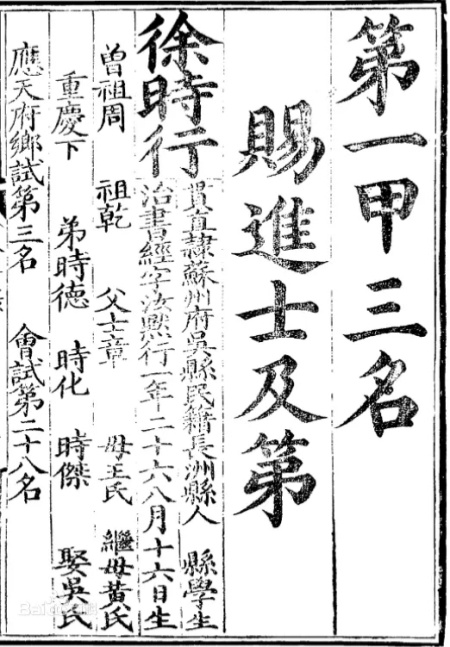 第一甲三名
賜進士及第
徐時行
貫直隸蘇州府吳縣民籍長洲縣人 縣學生
治書經字汝默行一年二十六八月十六日生
曾祖周 祖乾 父士章 母王氏 繼母黃氏
重慶下 弟時德 時化 時傑 娶吳氏
應天府鄉試第三名 會試第二十八名
Baidu百科